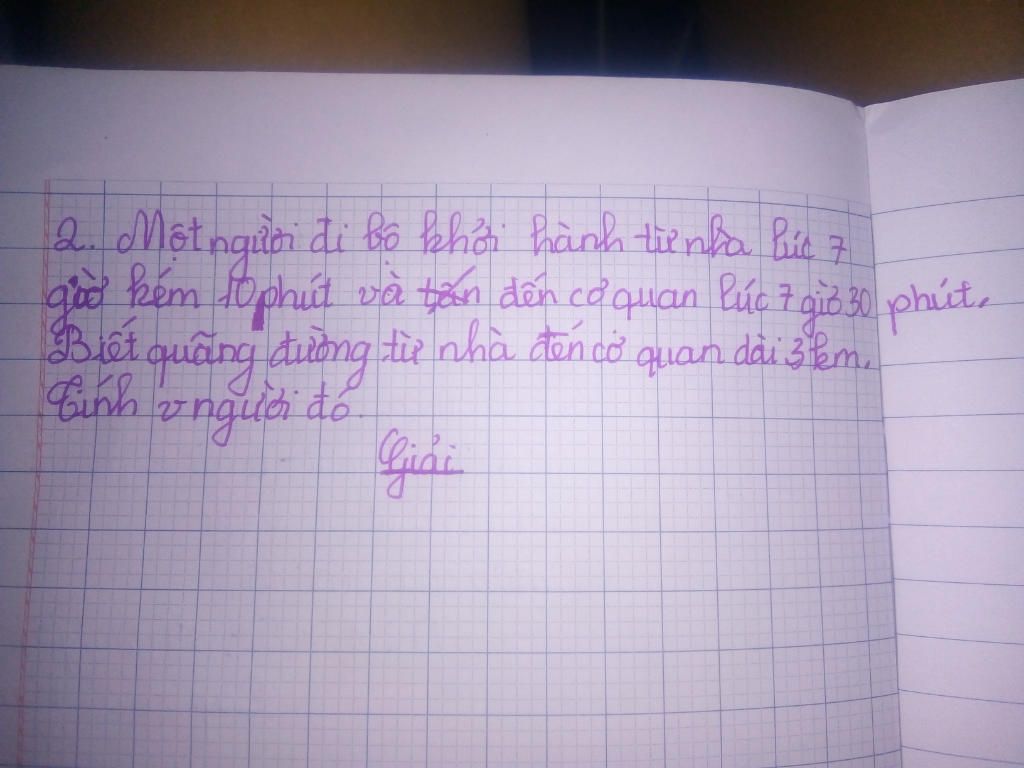 2. Một người đi bộ khởi hành từ nhà lúc 7
giờ kém 10 phút và đến cơ quan lúc 7 giờ 30 phút.
Biết quãng đường từ nhà đến cơ quan dài 3 km.
Tính v người đó.
Giải